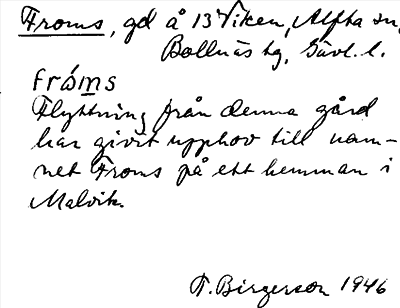 Froms, gd å 13 Viken, Alfta sn,
Bollnäs tg, Gävl. l.
fróms
Flyttning från denna gård
har givit upphov till nam-
net Froms på ett hemman i
Malvik.
T. Birgerson 1946